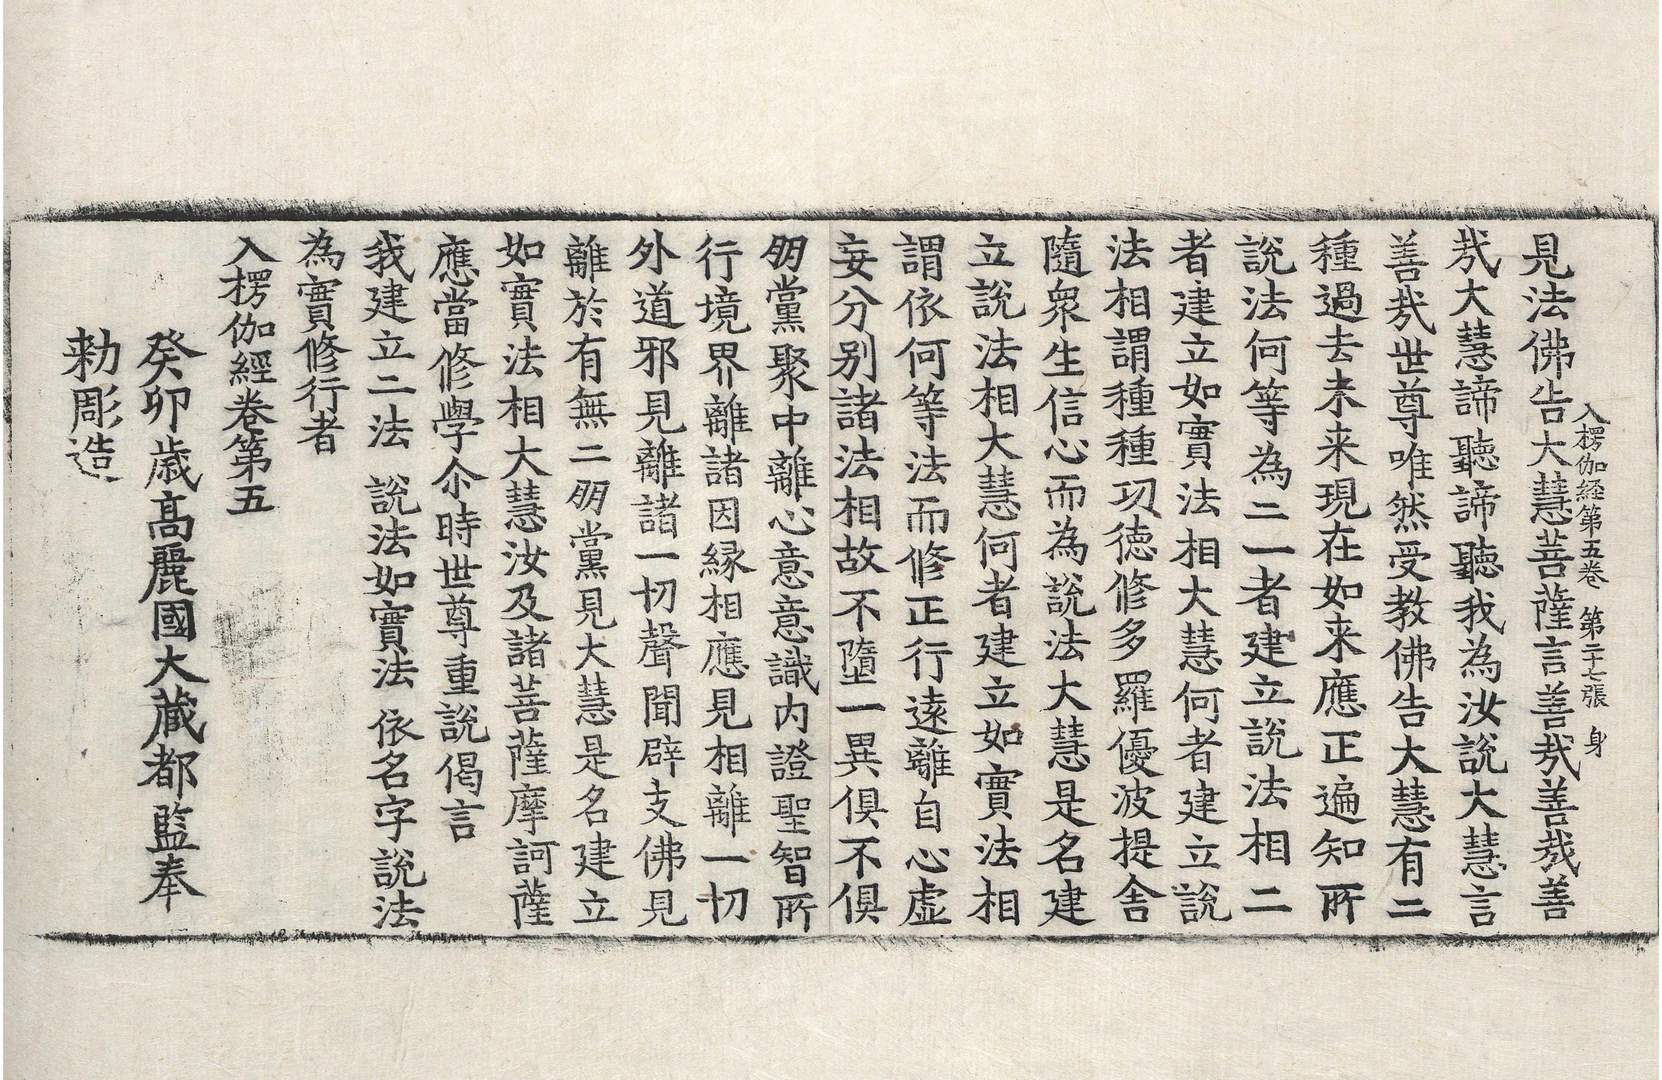 入楞伽経第五卷　第二十七張　身
見法佛告大慧菩薩言善㢤善㢤善
㢤大慧諦聽諦聽我為汝說大慧言
善㢤世尊唯然受教佛告大慧有二
種過去未来現在如来應正遍知所
說法何等為二一者建立說法相二
者建立如實法相大慧何者建立說
法相謂種種功徳修多羅優波提舍
隨衆生信心而為說法大慧是名建
立說法相大慧何者建立如實法相
謂依何等法而修正行遠離自心虛
妄分别諸法相故不墮一異俱不俱
朋黨聚中離心意意識内證聖智所
行境界離諸因縁相應見相離一切
外道邪見離諸一切聲聞辟支佛見
離於有無二朋黨見大慧是名建立
如實法相大慧汝及諸菩薩摩訶薩
應當修學尒時世尊重說偈言
我建立二法　說法如實法　依名字說法
為實修行者
入楞伽經卷第五
癸卯歲髙麗國大藏都監奉
勑彫造